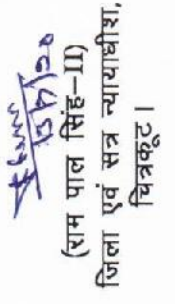 (राम पाल सिंह-II)
जिला एवं सत्र न्यायाधीश,
चित्रकूट।